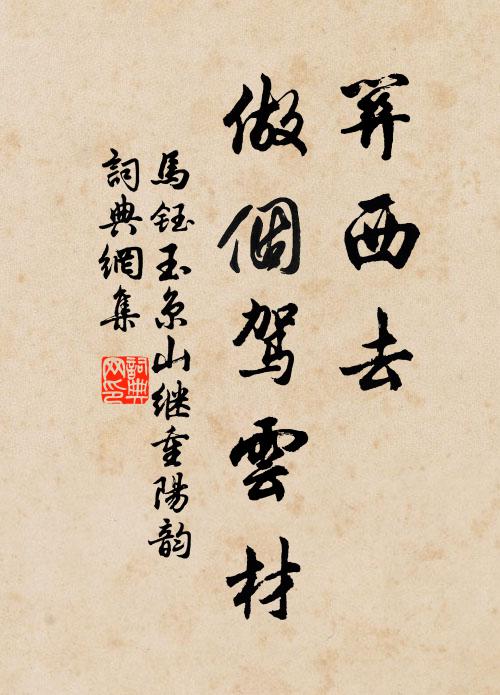 西去
做個駕雲材
馬鈺玉京山继重陽韵
詞典網集
詞典
网印